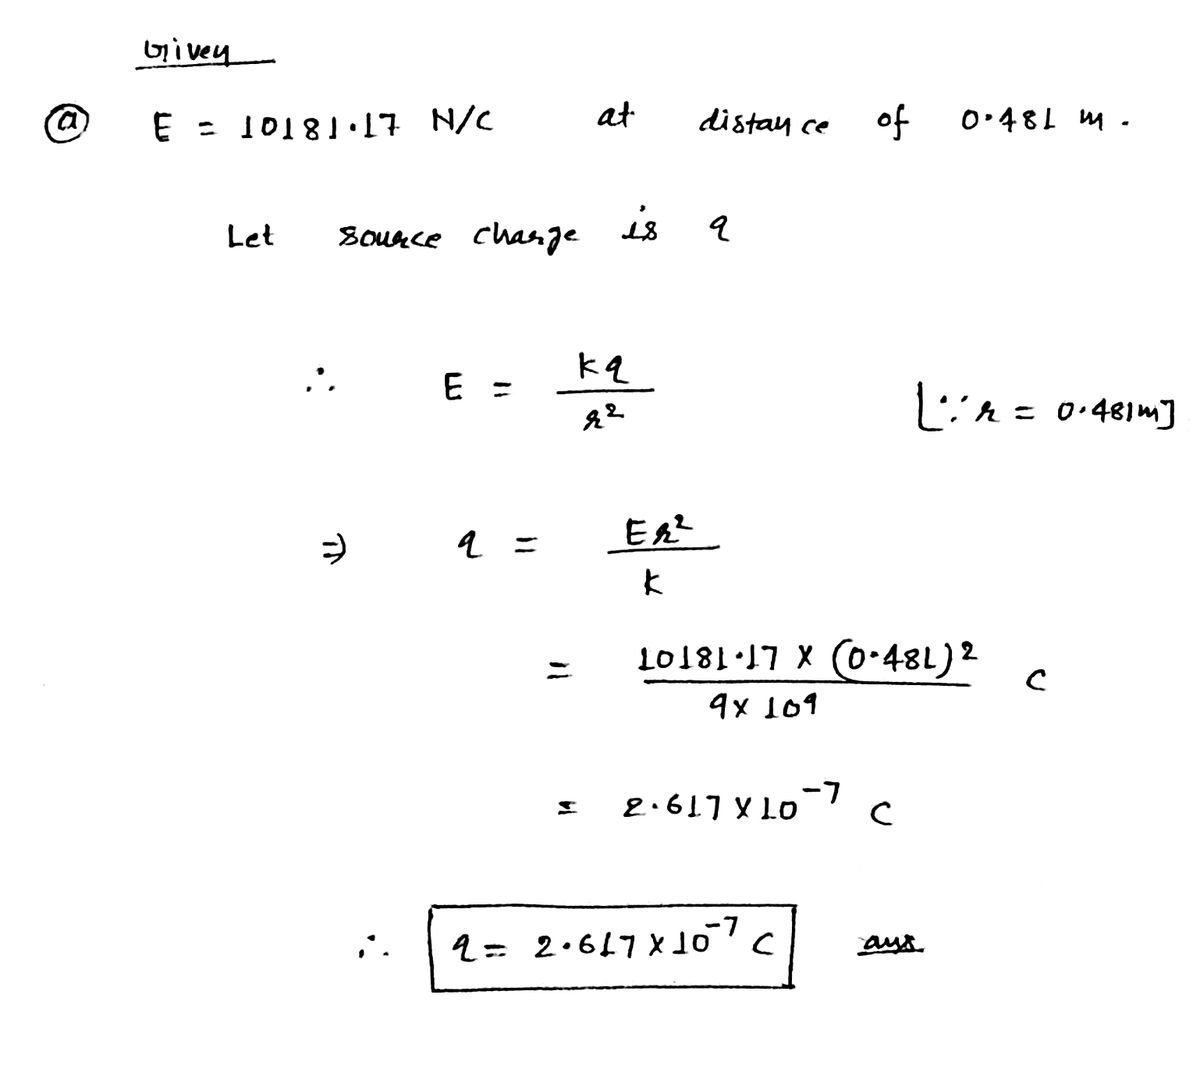 Given
(a) E = 10181.17 N/C at distance of 0.481 m.
Let source charge is q
∴ E = kq/r² [∵ r = 0.481m]
⇒ q = Er²/k
= 10181.17 × (0.481)²/9×10⁹ C
= 2.617×10⁻⁷ C
∴ q = 2.617×10⁻⁷ C ans